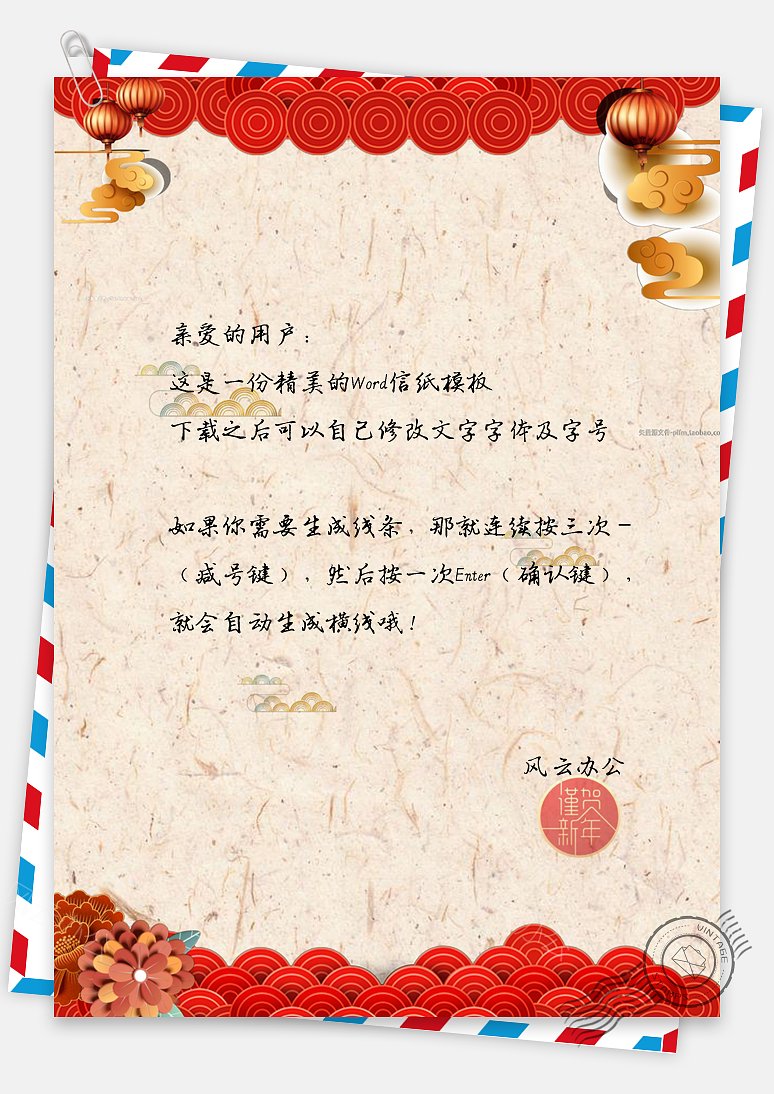 亲爱的用户：
这是一份精美的Word信纸模板
下载之后可以自己修改文字字体及字号
如果你需要生成线条，那就连续按三次－
（减号键），然后按一次Enter（确认键），
就会自动生成横线哦！
风云办公
谨贺
新年
VINTAGE